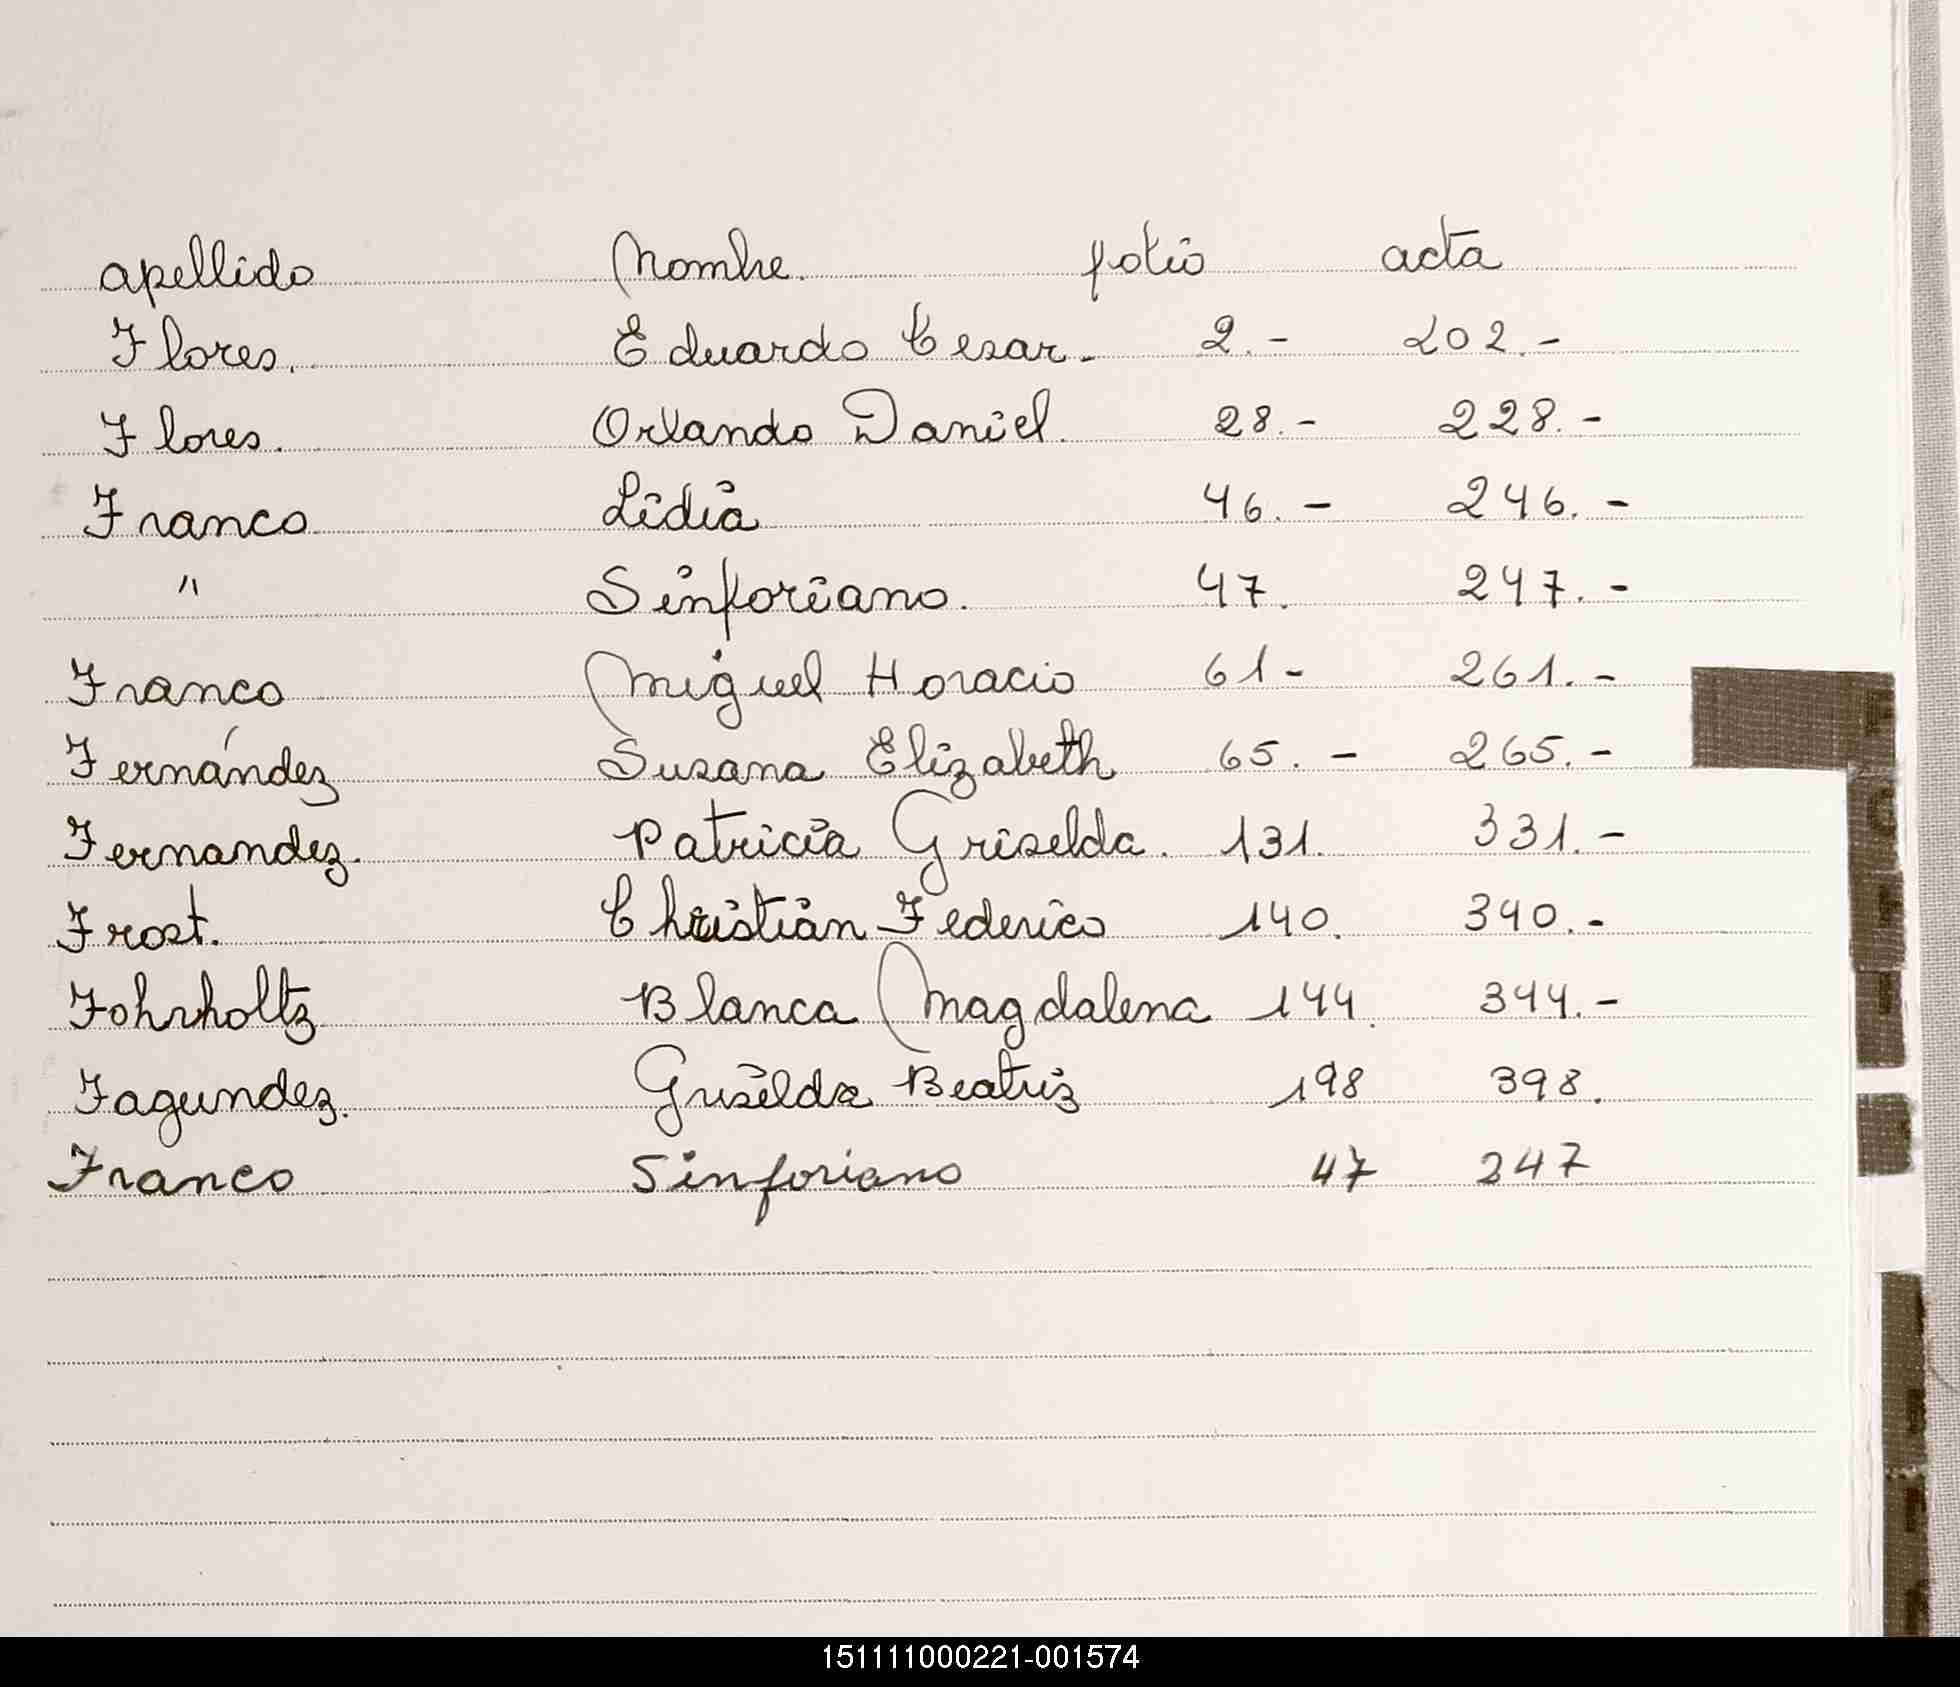 apellido Nombre. folio acta
Flores. Eduardo Cesar.- 2.- 202.-
Flores. Orlando Daniel. 28.- 228.-
Franco Lidia 46.- 246.-
" Sinforiano. 47. 247.-
Franco Miguel Horacio 61- 261.-
Fernández Susana Elizabeth 65.- 265.-
Fernandez. Patricia Griselda. 131. 331.-
Frost. Christian Federico 140. 340.-
Fohrholtz Blanca Magdalena 144. 344.-
Fagundez. Griselda Beatriz 198 398.
Franco Sinforiano 47 247
151111000221-001574